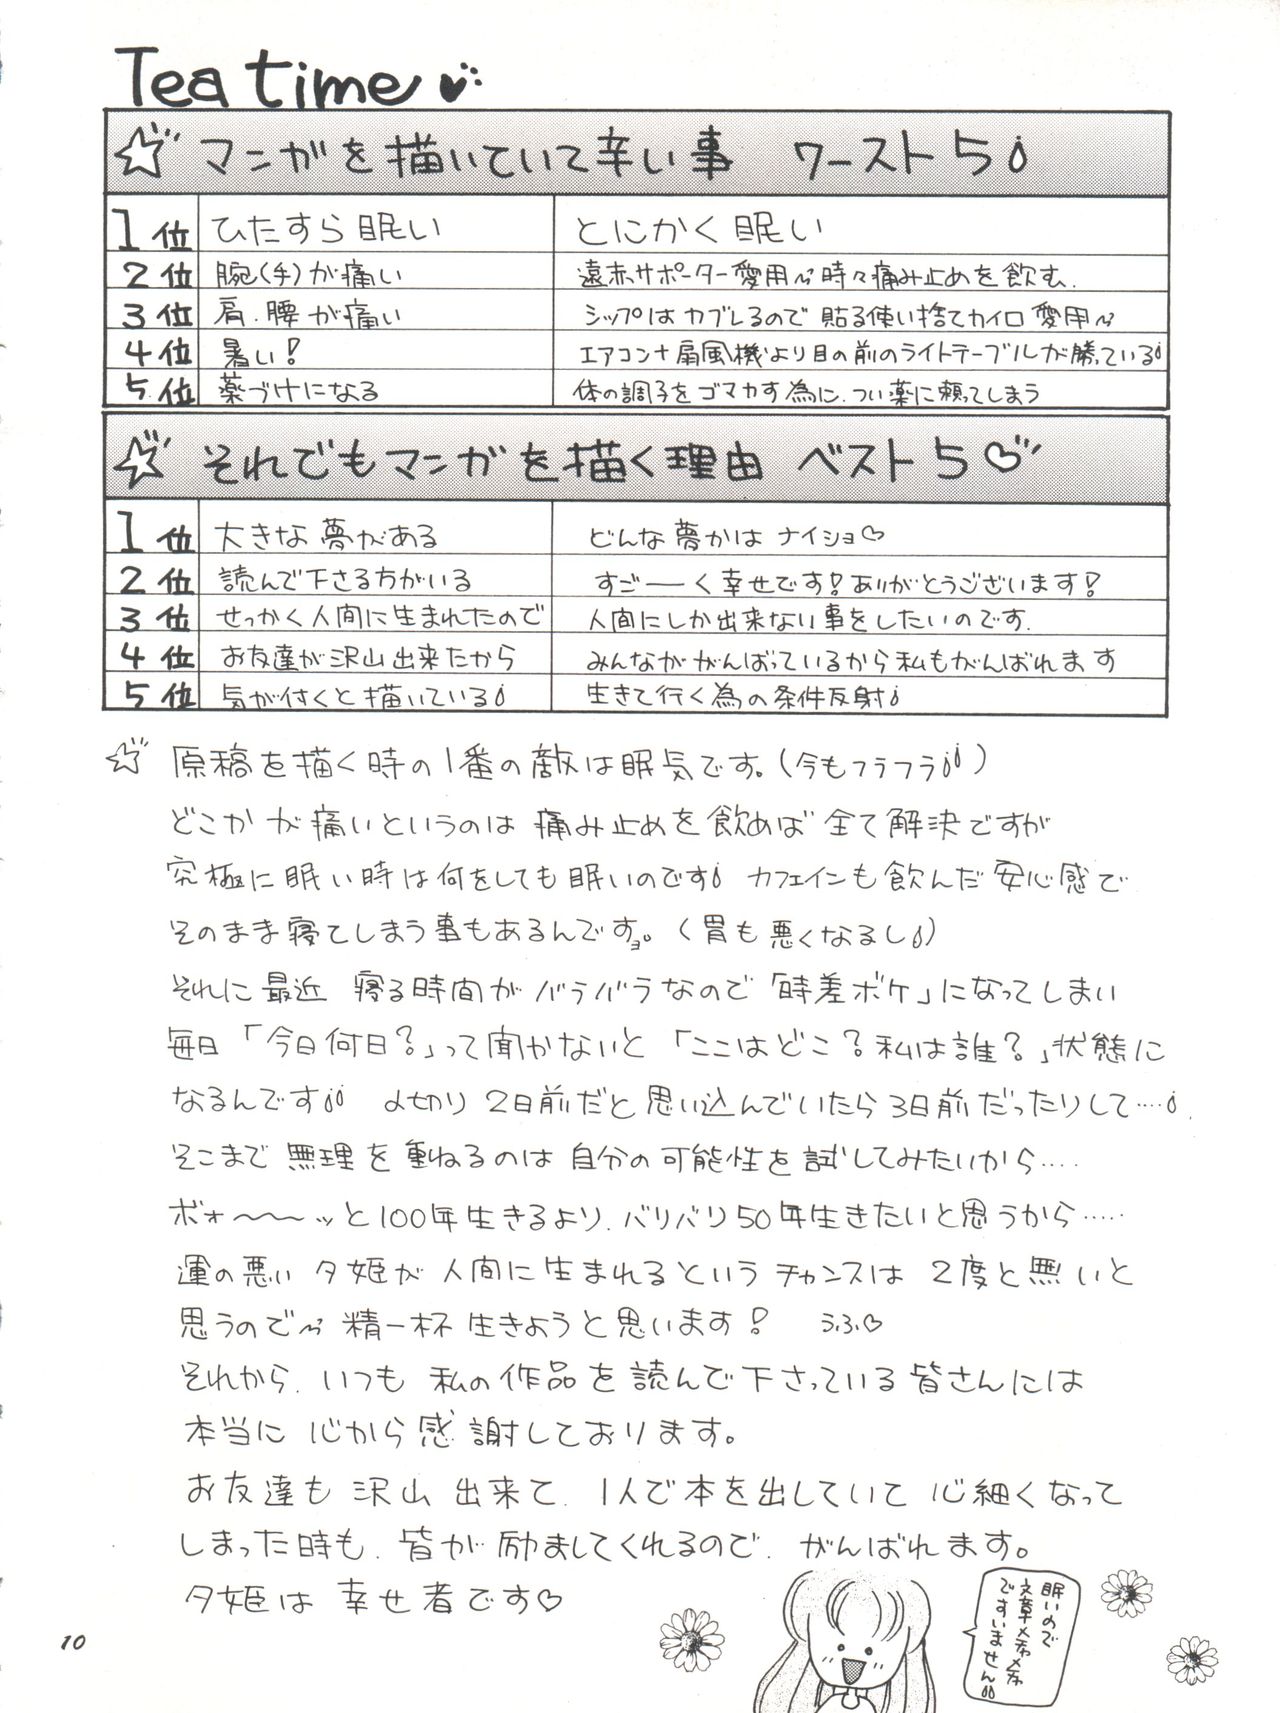 Tea time
マンガを描いていて辛い事 ワースト5
1位 ひたすら眠い とにかく眠い
2位 腕(手)が痛い 遠赤サポーター愛用〜時々痛み止めを飲む、
3位 肩、腰が痛い シップはカブレるので貼る使い捨てカイロ愛用〜
4位 暑い! エアコン+扇風機より目の前のライトテーブルが勝っている
5位 薬づけになる 体の調子をゴマカす為に、つい薬に頼ってしまう
それでもマンガを描く理由 ベスト5♡
1位 大きな夢がある どんな夢かはナイショ♡
2位 読んで下さる方がいる すご──く幸せです!ありがとうございます!
3位 せっかく人間に生まれたので 人間にしか出来ない事をしたいのです。
4位 お友達が沢山出来たから みんながんばっているから私もがんばれます
5位 気が付くと描いている 生きて行く為の条件反射
☆ 原稿を描く時の1番の敵は眠気です。(今もフラフラ)
どこかが痛いというのは痛み止めを飲めば全て解決ですが
究極に眠い時は何をしても眠いのです カフェインも飲んだ安心感で
そのまま寝てしまう事もあるんですョ。(胃も悪くなるし)
それに最近 寝る時間がバラバラなので「時差ボケ」になってしまい
毎日「今日何日?」って聞かないと「ここはどこ?私は誰?」状態に
なるんです 〆切り2日前だと思い込んでいたら3日前だったりして……
そこまで無理を重ねるのは自分の可能性を試してみたいから……
ボォ〜〜〜ッと100年生きるより、バリバリ50年生きたいと思うから……
運の悪い夕姫が人間に生まれるというチャンスは2度と無いと
思うので〜精一杯生きようと思います! うふ♡
それから、いつも私の作品を読んで下さっている皆さんには
本当に心から感謝しております。
お友達も沢山出来て、1人で本を出していて心細くなって
しまった時も、皆が励ましてくれるので、がんばれます。
夕姫は幸せ者です♡
眠いので
文章メチャメチャ
ですいません
10